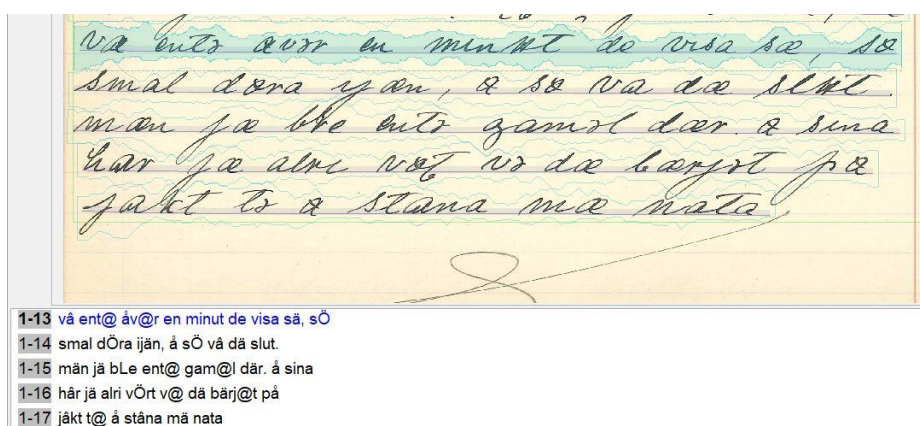 va entə avər en minut de visa sæ, sø
smal døra ijæn, a sø va dæ slut.
mæn jæ bLe entə gaməl dær. a sina
har jæ alri vøt və dæ bærjət pa
jakt tə a stana mæ nata
1-13 vâ ent@ åv@r en minut de visa sä, sÖ
1-14 smal dÖra ijän, å sÖ vâ dä slut.
1-15 män jä bLe ent@ gam@l där. å sina
1-16 hâr jä alri vÖrt v@ dä bärj@t på
1-17 jâkt t@ å stâna mä nata